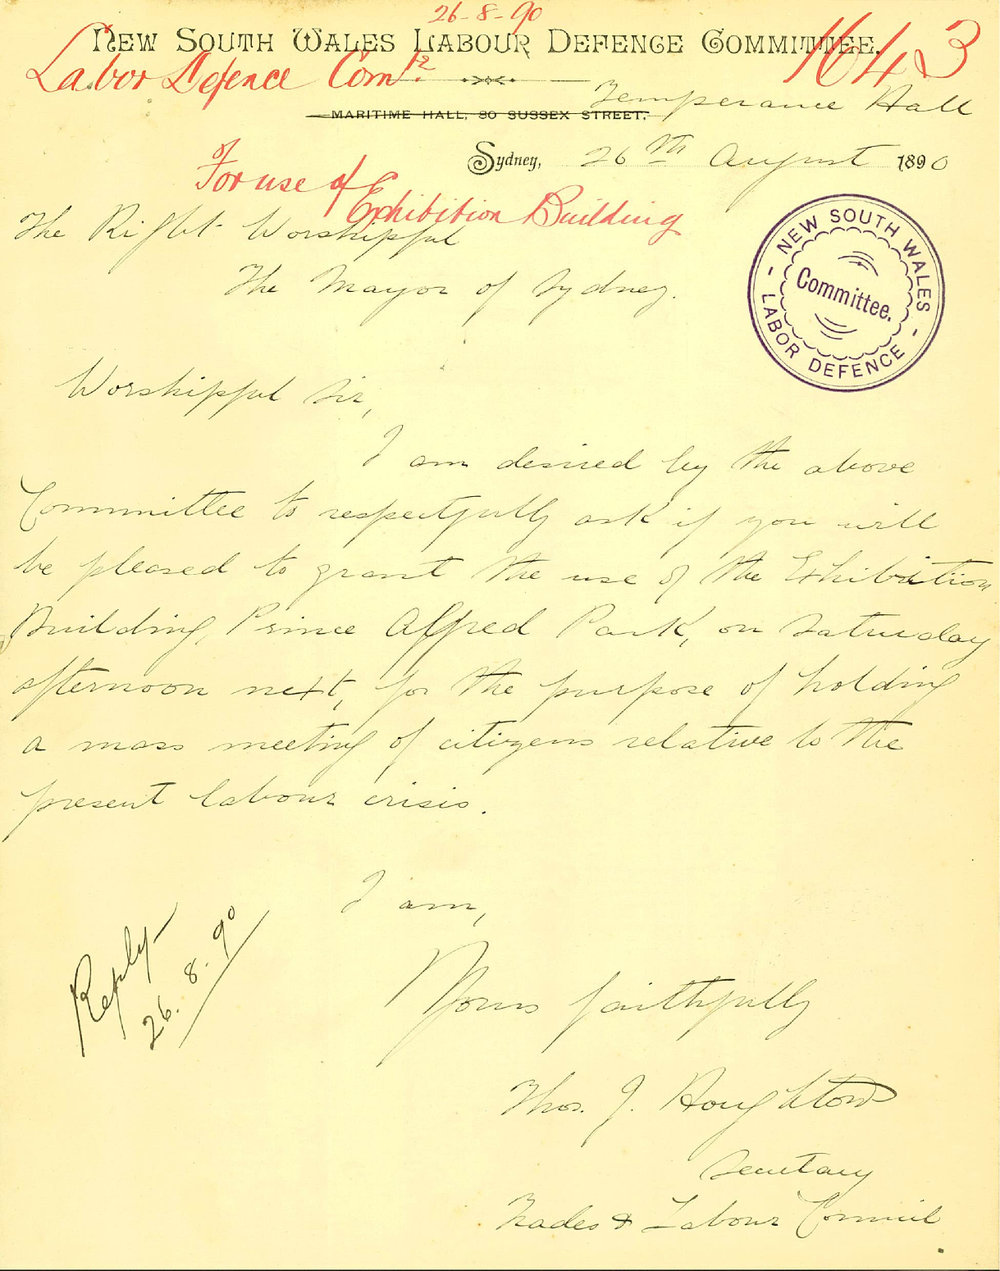 26-8-90
NEW SOUTH WALES LABOUR DEFENCE COMMITTEE.
1643
Labor Defence Comte
Temperance Hall
MARITIME HALL, 80 SUSSEX STREET.
Sydney, 26th August 1890
For use of
Exhibition Building
The Right Worshipful
The Mayor of Sydney.
NEW SOUTH WALES
Committee.
LABOR DEFENCE
Worshipful Sir,
I am desired by the above
Committee to respectfully ask if you will
be pleased to grant the use of the Exhibition
Building, Prince Alfred Park, on Saturday
afternoon next, for the purpose of holding
a mass meeting of citizens relative to the
present labour crisis.
I am,
Reply
26.8.90
Yours faithfully
Thos. J. Houghton
Secretary
Trades & Labour Council